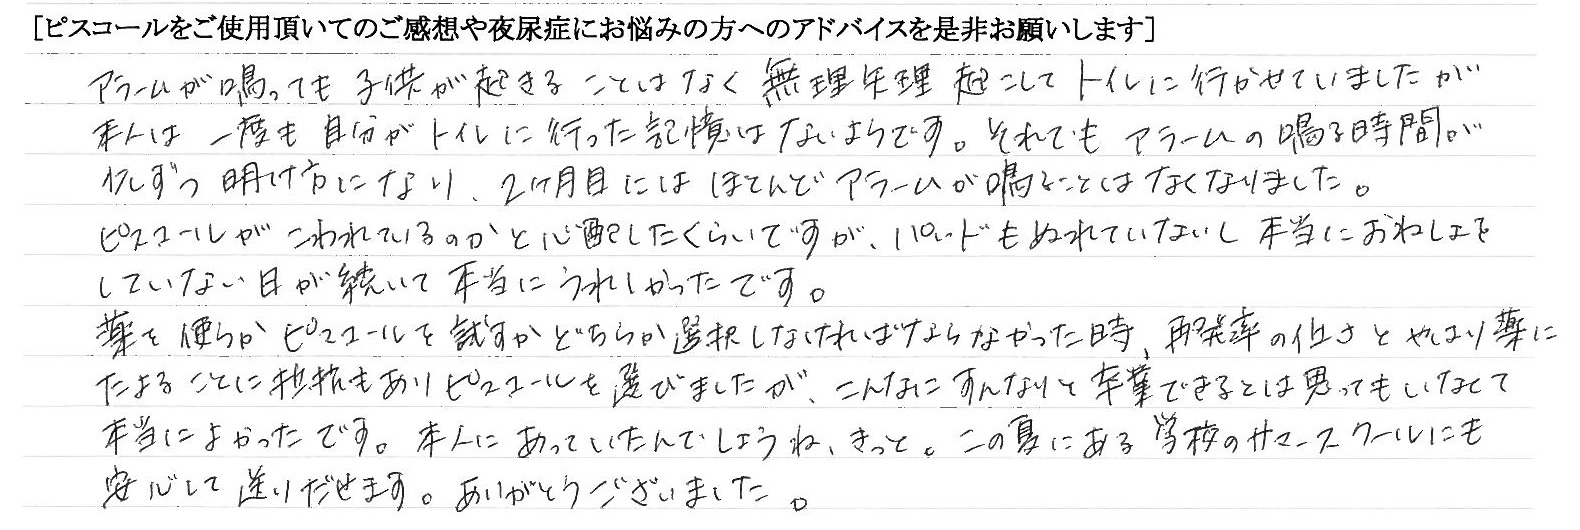 [ピスコールをご使用頂いてのご感想や夜尿症にお悩みの方へのアドバイスを是非お願いします]
アラームが鳴っても子供が起きることはなく無理矢理起こしてトイレに行かせていましたが
本人は一度も自分がトイレに行った記憶はないようです。それでもアラームの鳴る時間が
少しずつ明け方になり、2ヶ月目にはほとんどアラームが鳴ることはなくなりました。
ピスコールがこわれているのかと心配したくらいですが、パッドもぬれていないし本当におねしょを
していない日が続いて本当にうれしかったです。
薬を使うかピスコールを試すかどちらか選択しなければならなかった時、再発率の低さとやはり薬に
たよることに抵抗もありピスコールを選びましたが、こんなにすんなりと卒業できるとは思ってもいなくて
本当によかったです。本人にあっていたんでしょうね、きっと。この夏にある学校のサマースクールにも
安心して送りだせます。ありがとうございました。